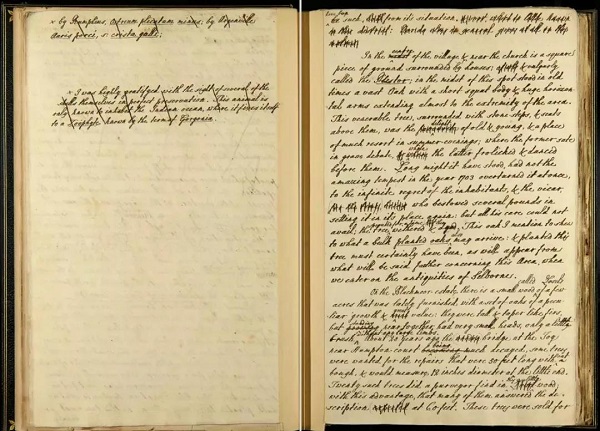 × by Rumphius, ostreum plicatum minus; by D'Argenville
auris porci, s: crista galli;
× I was highly gratifyed with the sight of several of the
shells themselves in perfect preservation. This animal is
only known to inhabit the Indian ocean, where it fixes itself
to a Zoophyte known by the term of Gorgonia.
as such, from its situation,
this district:
In the centre of the village, & near the church is a square
piece of ground surrounded by houses; & vulgarly
called the Plestor: in the midst of this spot stood in old
times a vast Oak with a short squat body & huge horizon
tal arms extending almost to the extremity of the area.
This venerable tree, surrounded with stone steps, & seats
above them, was the delight of old & young, & a place
of much resort in summer-evenings; where the former sate
in grave debate, while the latter frolicked & danced
before them. Long might it have stood, had not the
amazing tempest in the year 1703 overturned it at once,
to the infinite regret of the inhabitants, & the vicar,
who bestowed several pounds in
setting it in its place again: but all his care could not
avail; the tree withered & died. This oak I mention to shew
to what a bulk planted oaks also may arrive: & planted this
tree must certainly have been, as will appear from
what will be said farther concerning this Area, when
we enter on the antiquities of Selborne.
On the Blackmoor estate there is a small wood called Losel's of a few
acres that was lately furnished, with a set of oaks of a pecu-
liar growth & great value: they were tall & taper like firs,
but standing near together had very small heads, only a little
brush without any large limbs. About 20 years ago the bridge at the Toy
near Hampton court being much decayed, some trees
were wanted for the repairs that were 50 feet long without
bough, & would measure 12 inches diameter at the little end.
Twenty such trees did a purveyor find in this little wood,
with this advantage, that many of them answered the de-
scription at 60 feet. These trees were sold for